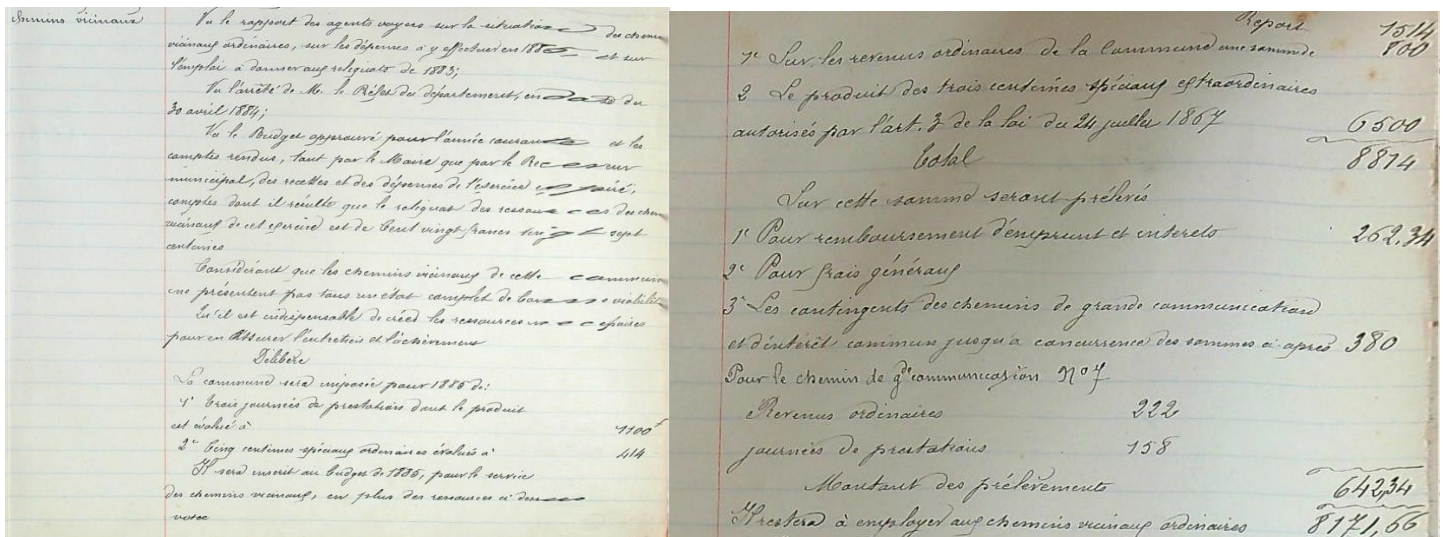 chemins vicinaux
Vu le rapport des agents voyers sur la situation des chemins
vicinaux ordinaires, sur les dépenses à y effectuer en 1885 et sur
l'emploi à donner aux reliquats de 1883;
Vu l'arrêté de M. le Préfet du département, en date du
30 avril 1884;
Vu le Budget approuvé pour l'année courante et les
comptes rendus, tant par le Maire que par le Receveur
municipal, des recettes et des dépenses de l'exercice expiré,
comptes dont il résulte que le reliquat des ressources des chem
vicinaux de cet exercice est de Cent vingt francs vingt sept
centimes
Considérant que les chemins vicinaux de cette commune
ne présentent pas tous un état complet de bonne viabilité
Qu'il est indispensable de créer les ressources nécessaires
pour en assurer l'entretien et l'achèvement
Délibère
La commune sera imposée pour 1885 de:
1° Trois journées de prestation dont le produit
est évalué à 1100f
2° Cinq centimes spéciaux ordinaires évalués à 414
Il sera inscrit au budget de 1885, pour le service
des chemins vicinaux, en plus des ressources ci dessus
votée
Report 1514
1° Sur les revenus ordinaires de la Commune une somme de 800
2 Le produit des trois centimes spéciaux extraordinaires
autorisés par l'art. 3 de la loi du 24 juillet 1867 6500
Total 8814
Sur cette somme seront prélevés
1° Pour remboursement d'emprunt et intérets 262,34
2° Pour frais généraux
3° Les contingents des chemins de grande communication
et d'intérêt commun jusqu'à concurrence des sommes ci après 380
Pour le chemin de gde communication N° 7
Revenus ordinaires 222
journées de prestations 158
Montant des prélèvements 642,34
Il restera à employer aux chemins vicinaux ordinaires 8171,66